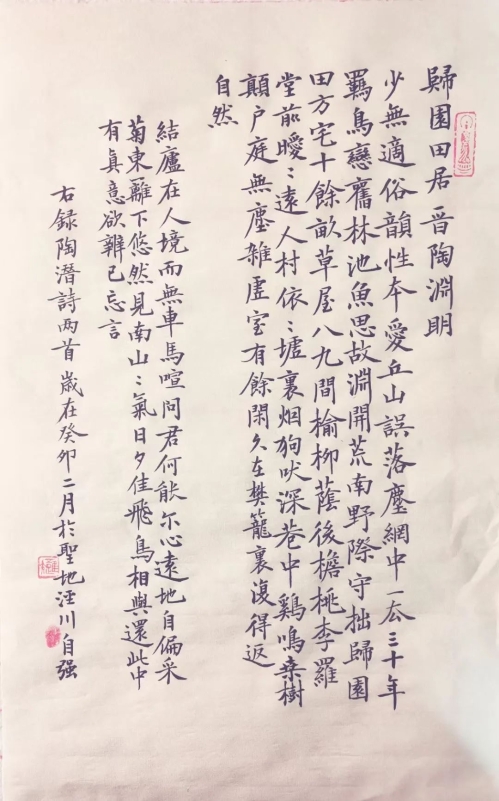 歸園田居 晉陶淵明
少無適俗韻性本愛丘山誤落塵網中一去三十年
羈鳥戀舊林池魚思故淵開荒南野際守拙歸園
田方宅十餘畝草屋八九間榆柳蔭後檐桃李羅
堂前曖〻遠人村依〻墟裏烟狗吠深巷中鷄鳴桑樹
顛户庭無塵雜虛室有餘閑久在樊籠裏復得返
自然
結廬在人境而無車馬喧問君何能尔心遠地自偏采
菊東籬下悠然見南山〻氣日夕佳飛鳥相與還此中
有真意欲辨已忘言
右録陶潛詩两首歲在癸卯二月於聖地涇川自强